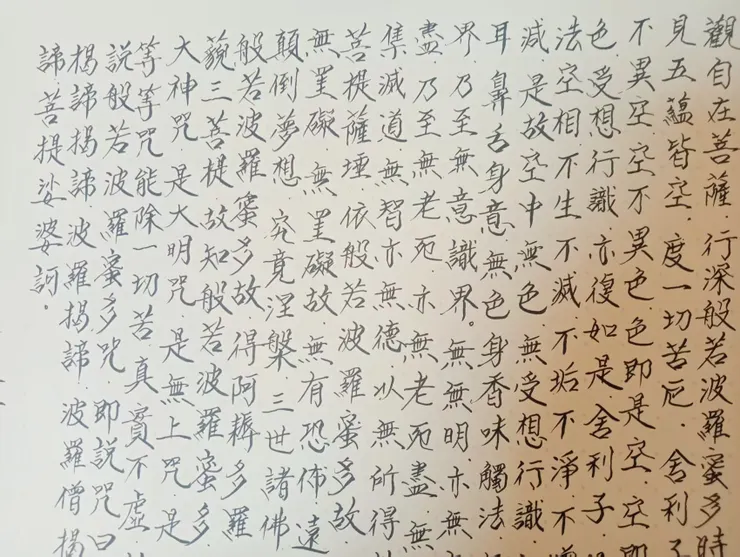 觀自在菩薩．行深般若波羅蜜多時
見五蘊皆空．度一切苦厄．舍利子
不異空空不異色色即是空．空即
色受想行識．亦復如是．舍利子．
法空相不生不滅．不垢不淨不增
減．是故空中無色．無受想行識．
耳鼻舌身意無色身香味觸法．
界．乃至無意識界。無無明．亦無
盡．乃至無老死．亦無老死盡．無
集滅道．無智亦無德．以無所得
菩提薩埵．依般若波羅蜜多故
無罣礙．無罣礙故．無有恐佈遠
顛倒夢想．究竟涅槃．三世諸佛
般若波羅蜜多故．得阿耨多羅
藐三菩提．故知般若波羅蜜多
大神咒．是大明咒．是無上咒．是
等等咒．能除一切苦真實不虛．
說般若波羅蜜多咒．即說咒曰
揭諦揭諦．波羅揭諦．波羅僧揭
諦菩提娑婆訶．